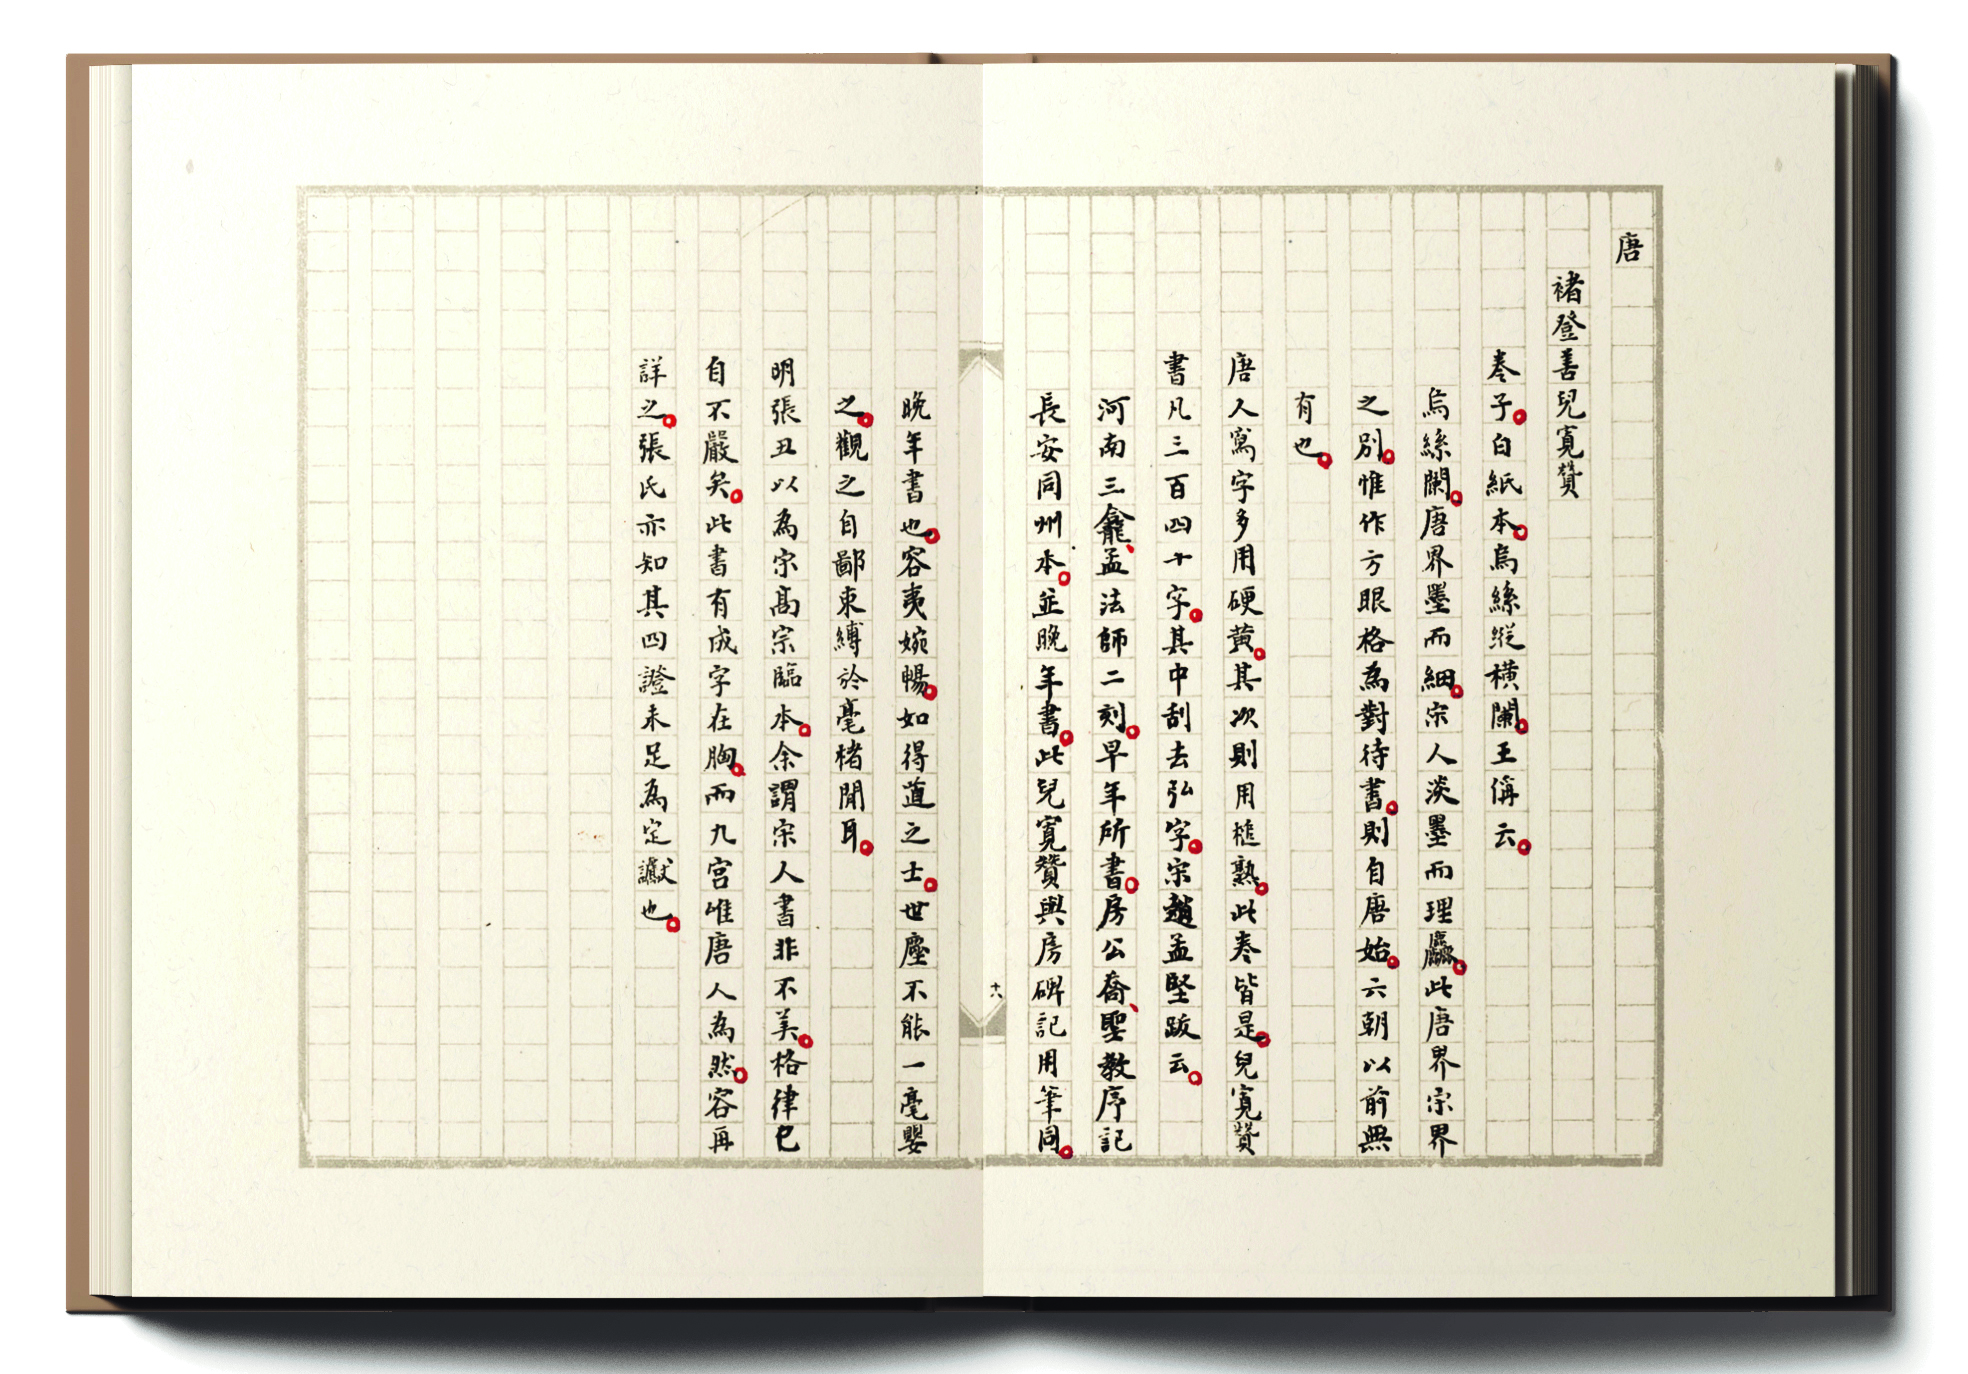 唐
褚登善兒寬贊
卷子。白紙本。烏絲縱橫闌。王偁云。
烏絲闌。唐界墨而細。宋人淡墨而理麤。此唐界宗界
之別。惟作方眼格為對待書。則自唐始。六朝以前無
有也。
唐人寫字多用硬黃。其次則用槌熟。此卷皆是。兒寬贊
書凡三百四十字。其中刮去弘字。宗趙孟堅跋云。
河南三龕、孟法師二刻。早年所書。房公喬、聖教序記
長安同州本。並晚年書。此兒寬贊與房碑記用筆同。
十六
晚年書也。容夷婉暢。如得道之士。世塵不能一毫嬰
之。觀之自鄙束縛於毫楮間耳。
明張丑以為宗高宗臨本。余謂宗人書非不美。格律已
自不嚴矣。此書有成字在胸。而九宮唯唐人為然。容再
詳之。張氏亦知其四證未足為定讞也。